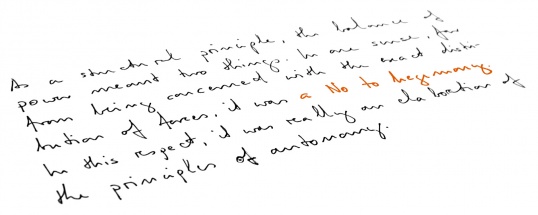 As a structural principle, the balance of
power meant two things. In one sense, far
from being concerned with the exact distri-
bution of forces, it was a No to hegemony.
In this respect, it was really an elaboration of
the principles of autonomy.